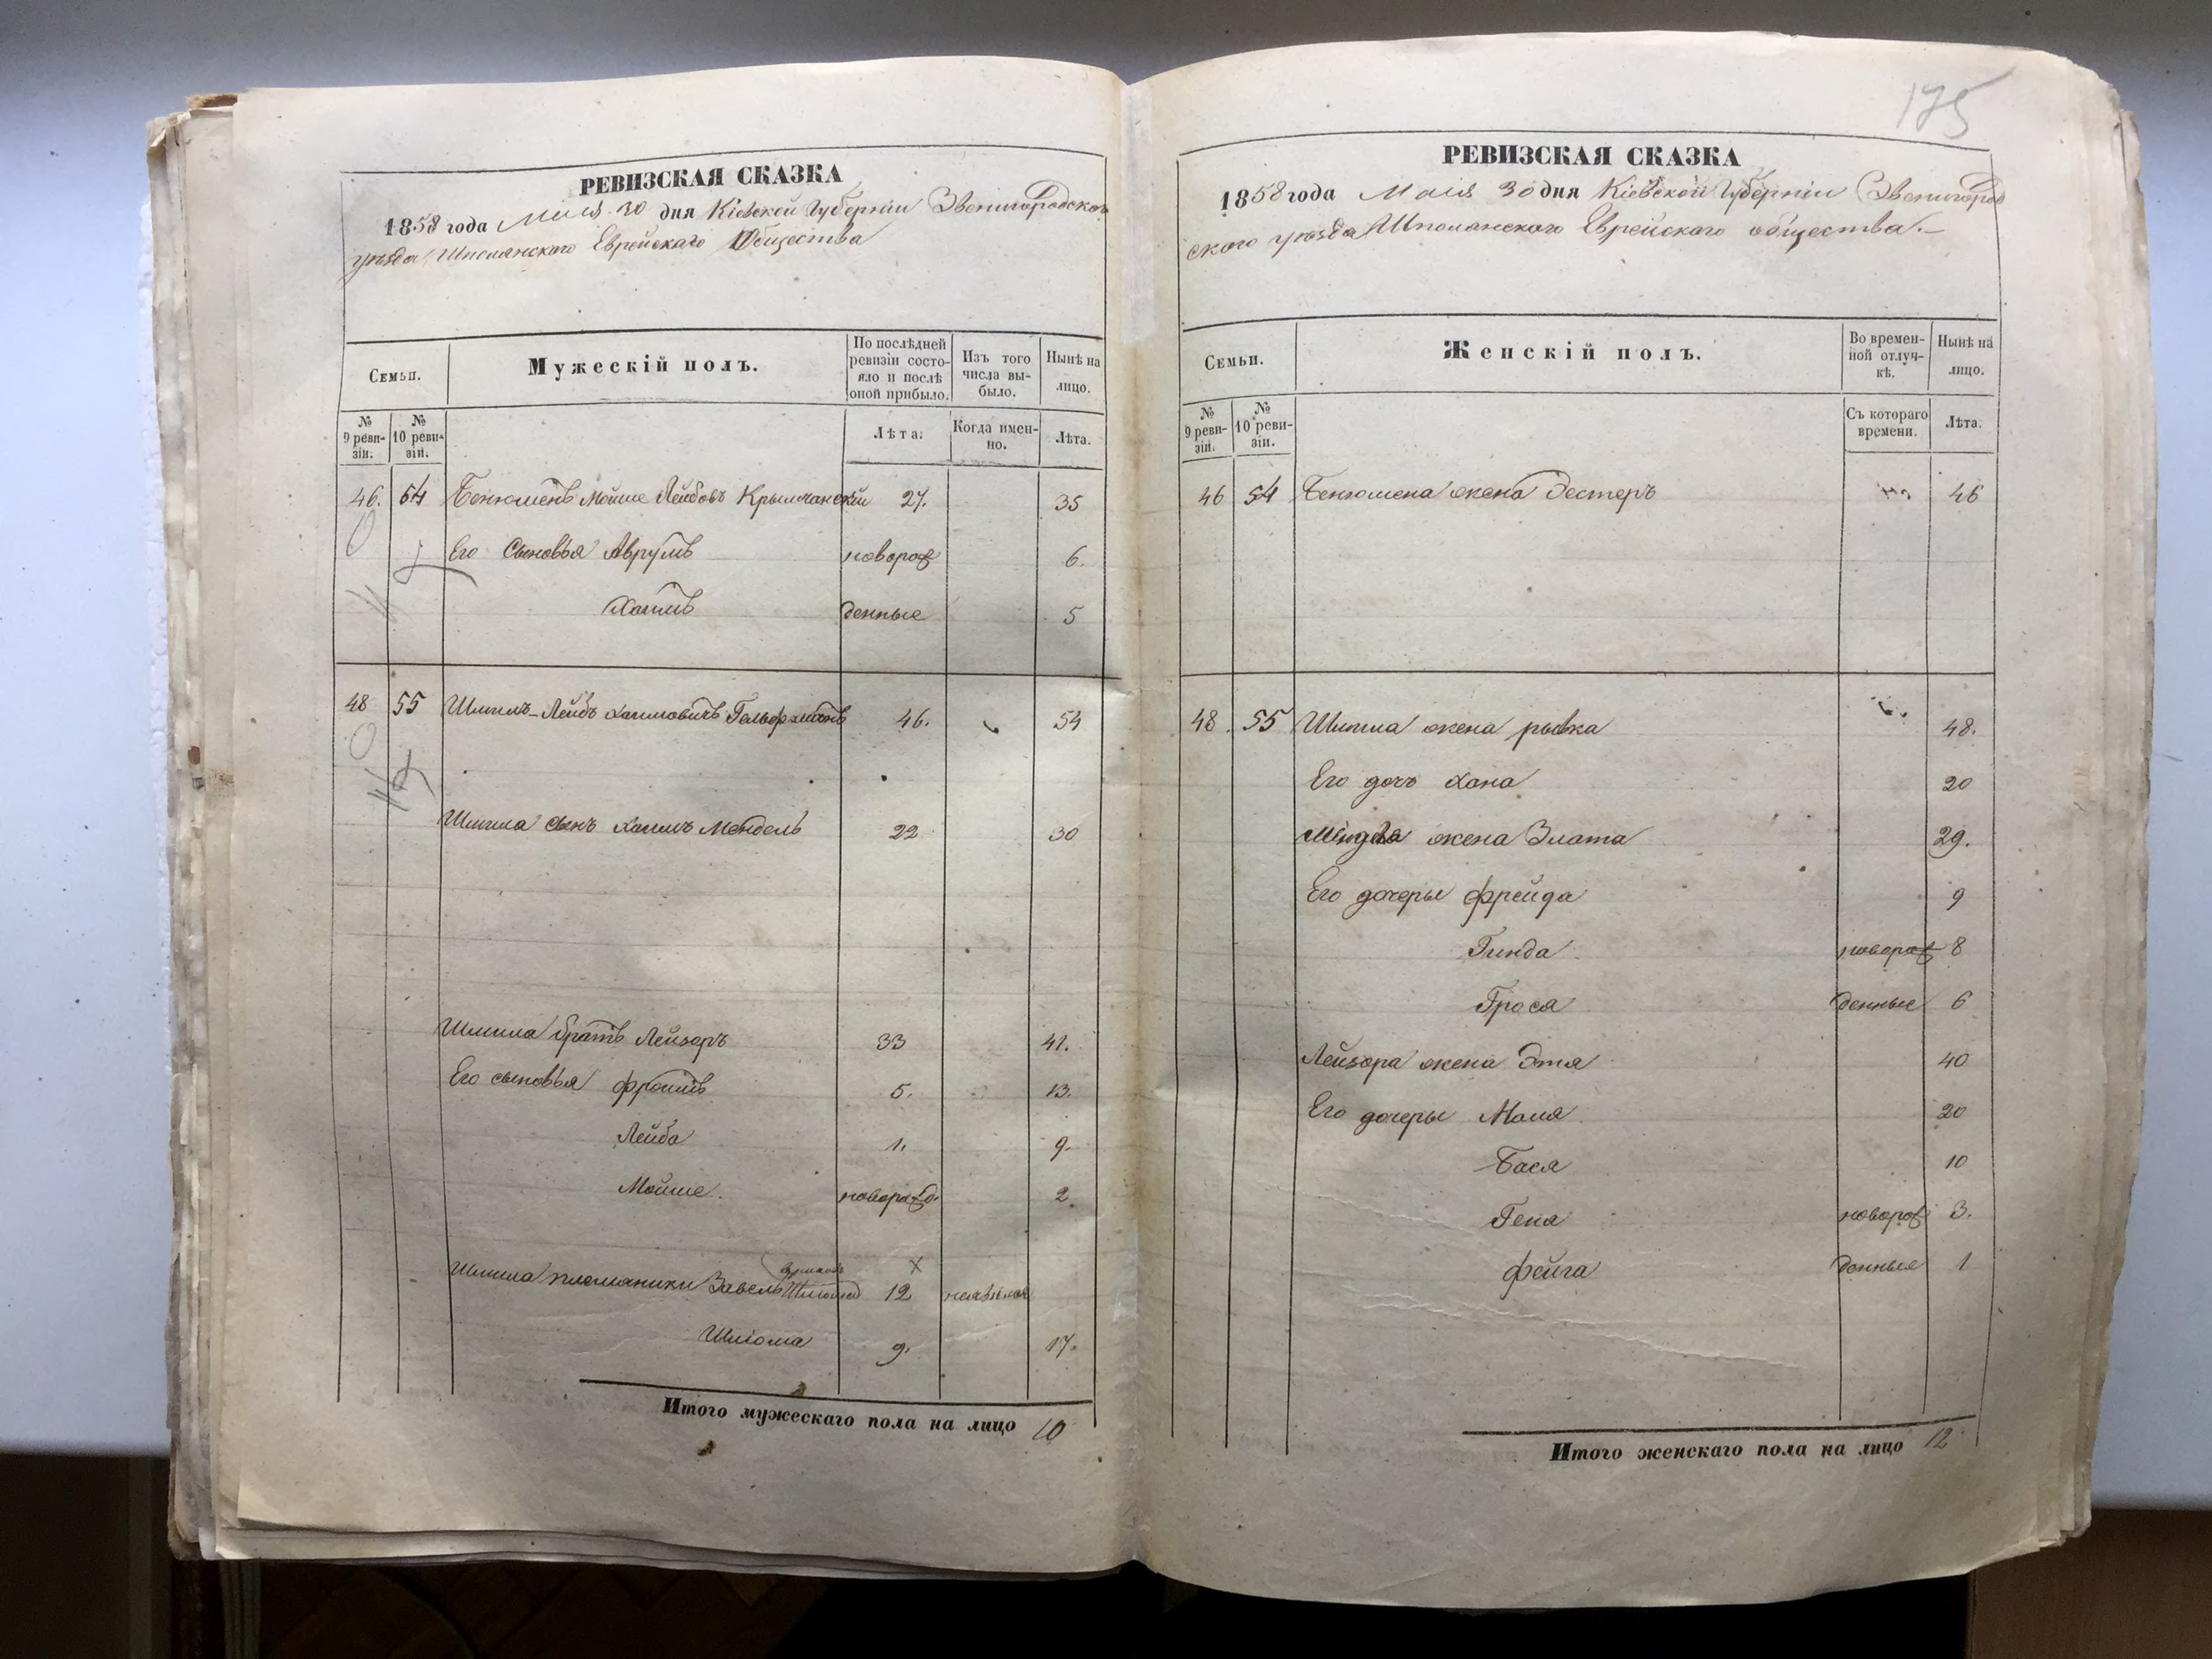 РЕВИЗСКАЯ СКАЗКА
1858 года Мая 30 дня Кіевской Губерніи Звенигородского
уѣзда Шполянскаго Еврейскаго Общества
Семьи.
Мужескій полъ.
По послѣдней ревизіи состояло и послѣ оной прибыло.
Изъ того числа выбыло.
Нынѣ на лицо.
№ 9 ревизіи.
№ 10 ревизіи.
Лѣта.
Когда именно.
Лѣта.
46. 54 Бенюменъ Мойше Лейбовъ Крымчанскій 27. 35
Его Сыновья Аврумъ новорож 6.
Хаимъ денные 5
48 55 Шмилъ-Лейбъ Хаимовичъ 46. 54
Шмила сынъ Хаимъ Мендель 22 30
Шмила братъ Лейзоръ 33 41.
Его сыновья Фроимъ 5. 13.
Лейба 1. 9.
Мойше. новорожд. 2
Х
Шмила племяники Завель 12
Шліома 9. 17.
Итого мужескаго пола на лицо 10
175
РЕВИЗСКАЯ СКАЗКА
1858 года Мая 30 дня Кіевской Губерніи Звенигород
ского уѣзда Шполянскаго Еврейскаго общества.
Семьи.
Женскій полъ.
Во временной отлучкѣ.
Нынѣ на лицо.
№ 9 ревизіи.
№ 10 ревизіи.
Съ котораго времени.
Лѣта.
46 54 Бенюмена жена Эестеръ 46
48. 55 Шмила жена рывка 48.
Его дочъ Хана 20
Менделя жена Злата 29.
Его дочеры Фрейда 9
Гинда новорож 8
Грася денные 6
Лейзора жена Этя 40
Его дочеры Маля 20
Бася 10
Геня новорож 3.
Фейга денные 1
Итого женскаго пола на лицо 12